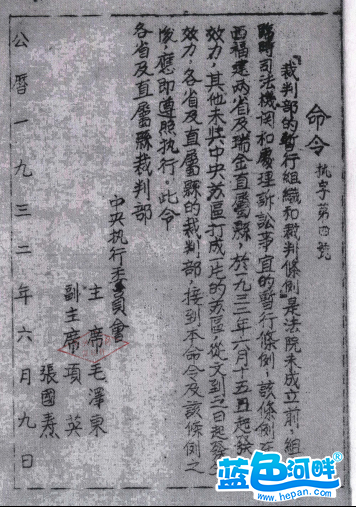 命令 执字第四號
「裁判部的暫行組織和裁判條例」是法院未成立前,組
臨時司法機関和處理訴訟事宜的暫行條例,該條例在
西福建两省及瑞金直屬縣,於一九三二年六月十五日起發
效力,其他未與中央苏區打成一片的苏區,從文到之日起發
效力,各省及直屬縣的裁判部,接到本命令及該條例之
後,應即遵照执行。此令
各省及直屬縣裁判部
中央执行委員會
主席 毛澤東
副主席 項英
張國燾
公曆一九三二年六月九日
蓝色河畔
www.hepan.com